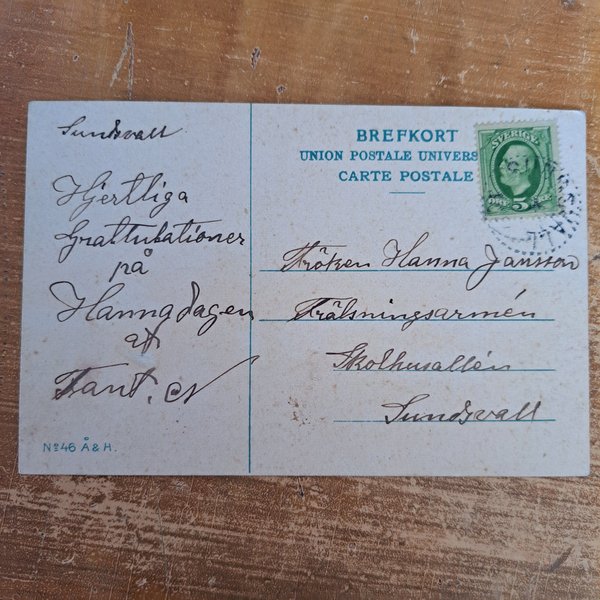 Sundsvall
Hjertliga
Grattulationer
på
Hannadagen
af
Tant. N
No 46 Å & H.
BREFKORT
UNION POSTALE UNIVERS
CARTE POSTALE
SVERIGE
ÖRE 5
SUNDSVALL
Fröken Hanna Jansson
Frälsningsarmén
Skolhusallén
Sundsvall